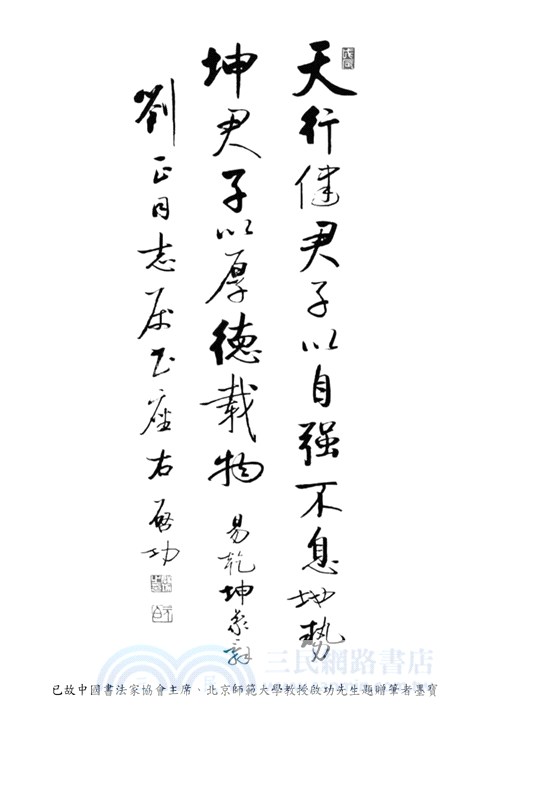 天行健君子以自强不息地勢
坤君子以厚德載物 易乾坤象辭
劉正同志属书座右 啓功
三民網路書店
已故中國書法家協會主席、北京師範大學教授啟功先生題贈筆者墨寶